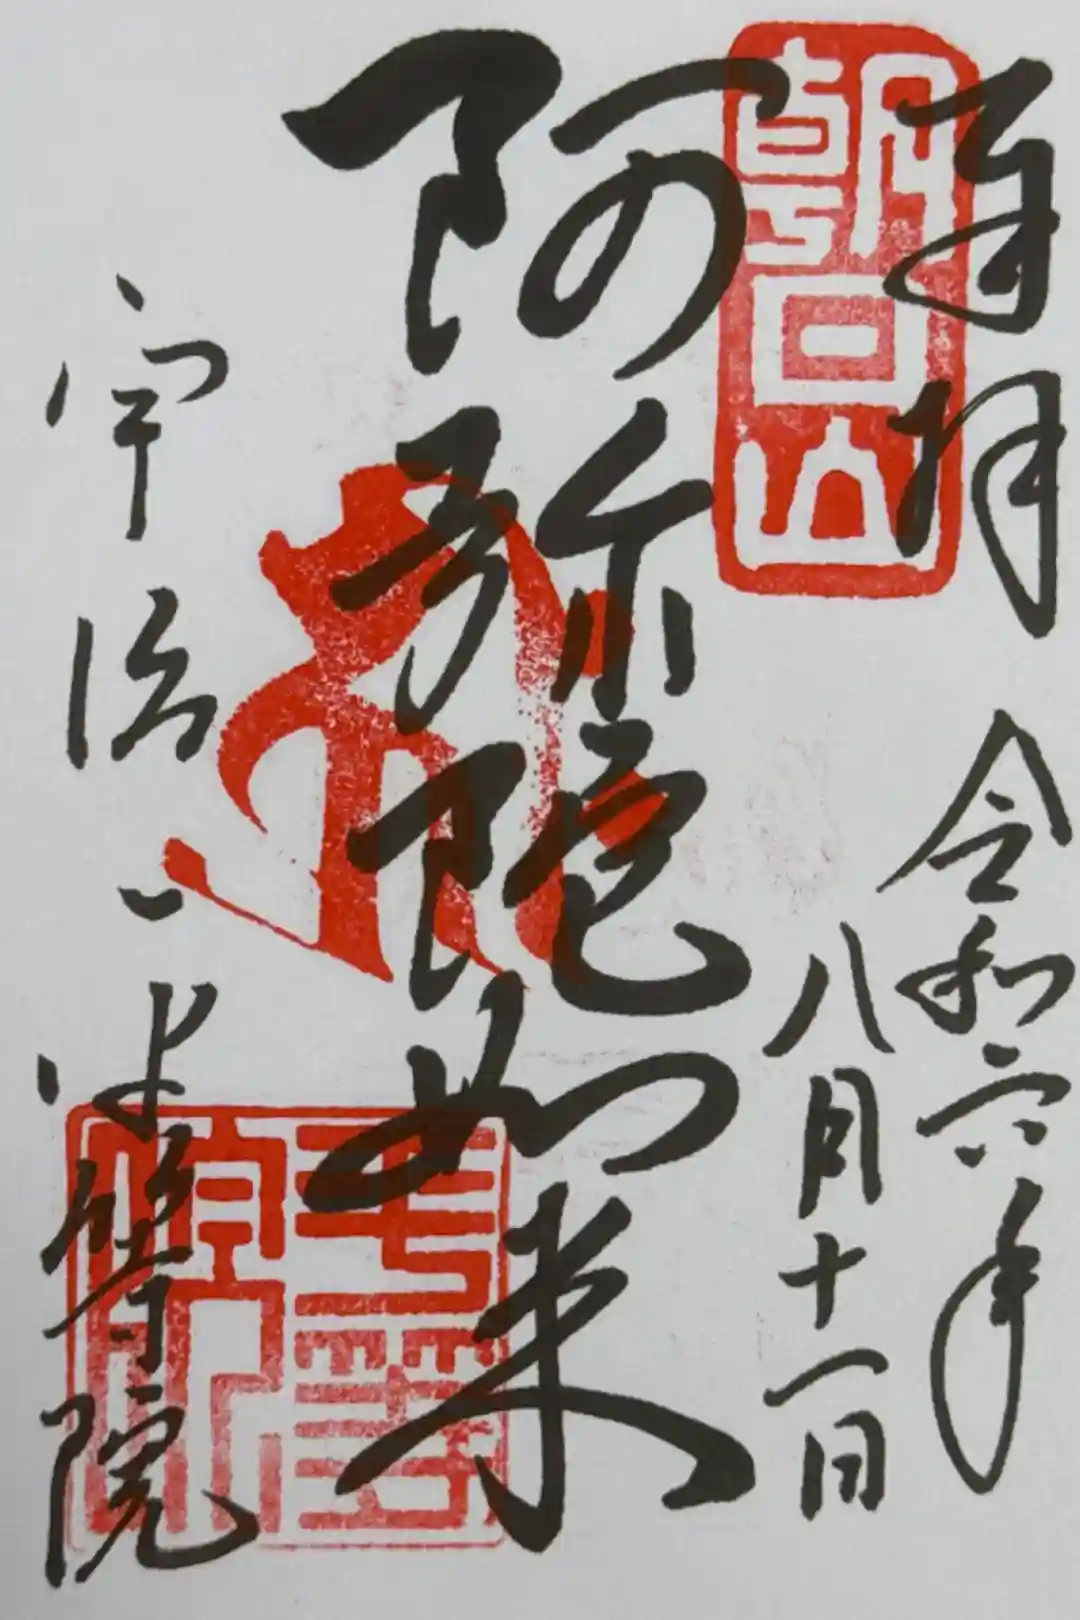 朝日山
奉拝 令和六年
八月十一日
阿弥陀如来
平等院印
宇治 平等院